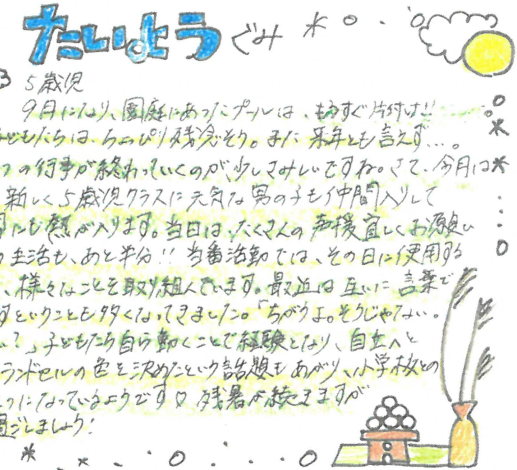 たいようぐみ
5歳児
9月になり、園庭にあったプールは、もうすぐ片付け!!
どもたちは、ちょっぴり残念そう。また来年とも言えず…。
つの行事が終わっていくのが、少しさみしいですね。さて、今月は
新しく5歳児クラスに元気な男の子も仲間入りして
にも熱が入ります。当日は、たくさんの声援宜しくお願い
の生活も、あと半分!! 当番活動では、その日に使用する
、様々なことを取り組んでいます。最近は互いに言葉で
すということも多くなってきました。「ちがうよ。そうじゃない。
い?」子どもたち自ら動くことで経験となり、自立へと
ランドセルの色を決めたという話題もあがり、小学校との
になっているようです♡ 残暑が続きますが
過ごしましょう!